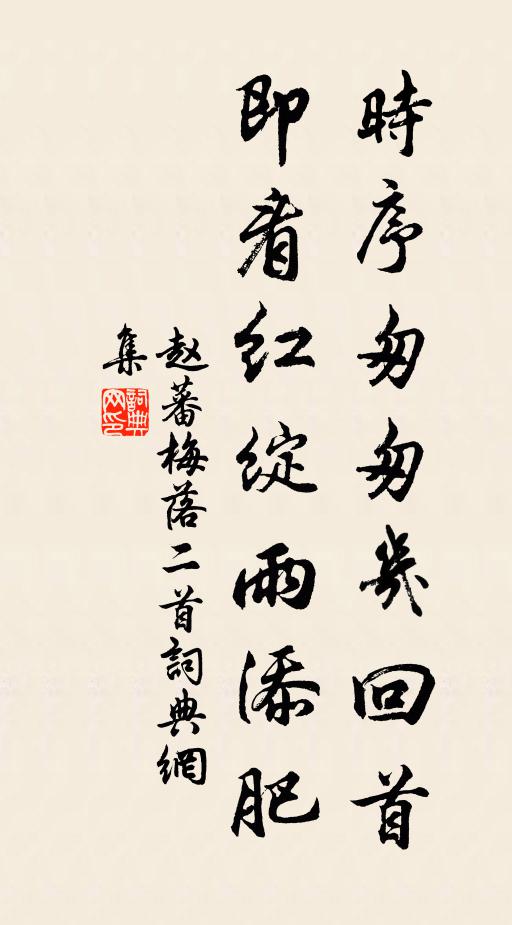 時序匆匆幾回首
即看紅綻雨添肥
赵蕃梅落二首詞典網
集
詞典网印